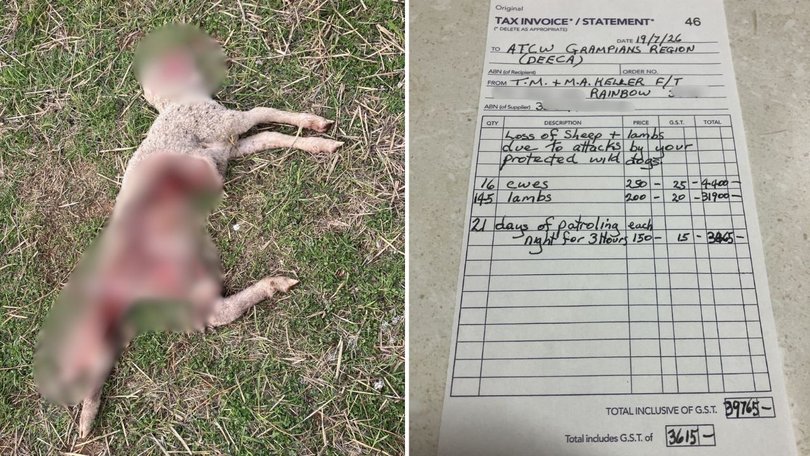 Original
TAX INVOICE*/STATEMENT* 46
(* DELETE AS APPROPRIATE)
DATE 19/7/26
TO ATCW GRAMPIANS REGION
(DEECA)
ABN (of Recipient) ORDER NO.
FROM T.M. + M.A. KELLER F/T
RAINBOW
ABN (of Supplier) 3
QTY DESCRIPTION PRICE G.S.T. TOTAL
Loss of Sheep + lambs
due to attacks by your
protected wild dogs
16 ewes 250 - 25 - 4400 -
145 lambs 200 - 20 - 31900 -
21 days of patroling each
night for 3 Hours 150 - 15 - 3465 -
TOTAL INCLUSIVE OF G.S.T. 39765 -
Total includes G.S.T. of 3615 -